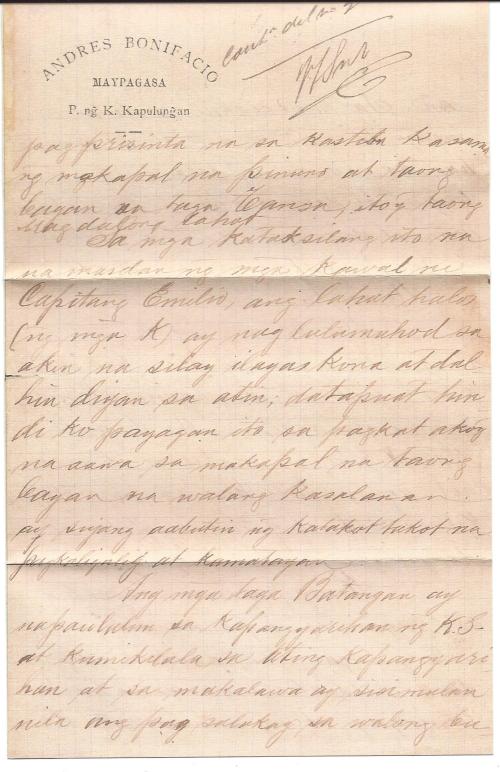 ANDRES BONIFACIO
MAYPAGASA
P. nĝ K. Kapulunĝan
pagprisinta na sa kastila kasama
ng makapal na pinuno at taong
bayan sa taga Tansa, itoy taong
Magdalong lahat
Sa mga kataksilang ito na
na masdan ng mga kawal ni
Capitang Emilio, ang lahat halos
(ng mga K) ay nag lulumuhod sa
akin na silay ilagas kona at dal
hin diyan sa atin; datapuat hin
di ko payagan ito sa pagkat akoy
na aawa sa makapal na taong
bayan na walang kasalanan
ay siyang aabutin ng katakot takot na
pagkaligalig at kamatayan
Ang mga taga Batangan ay
napailalim sa kapangyarihan ng K.S-
at kumikilala sa ating kapangyari
han at sa makalawa ay sisimulan
nila ang pag salakay sa walong ba